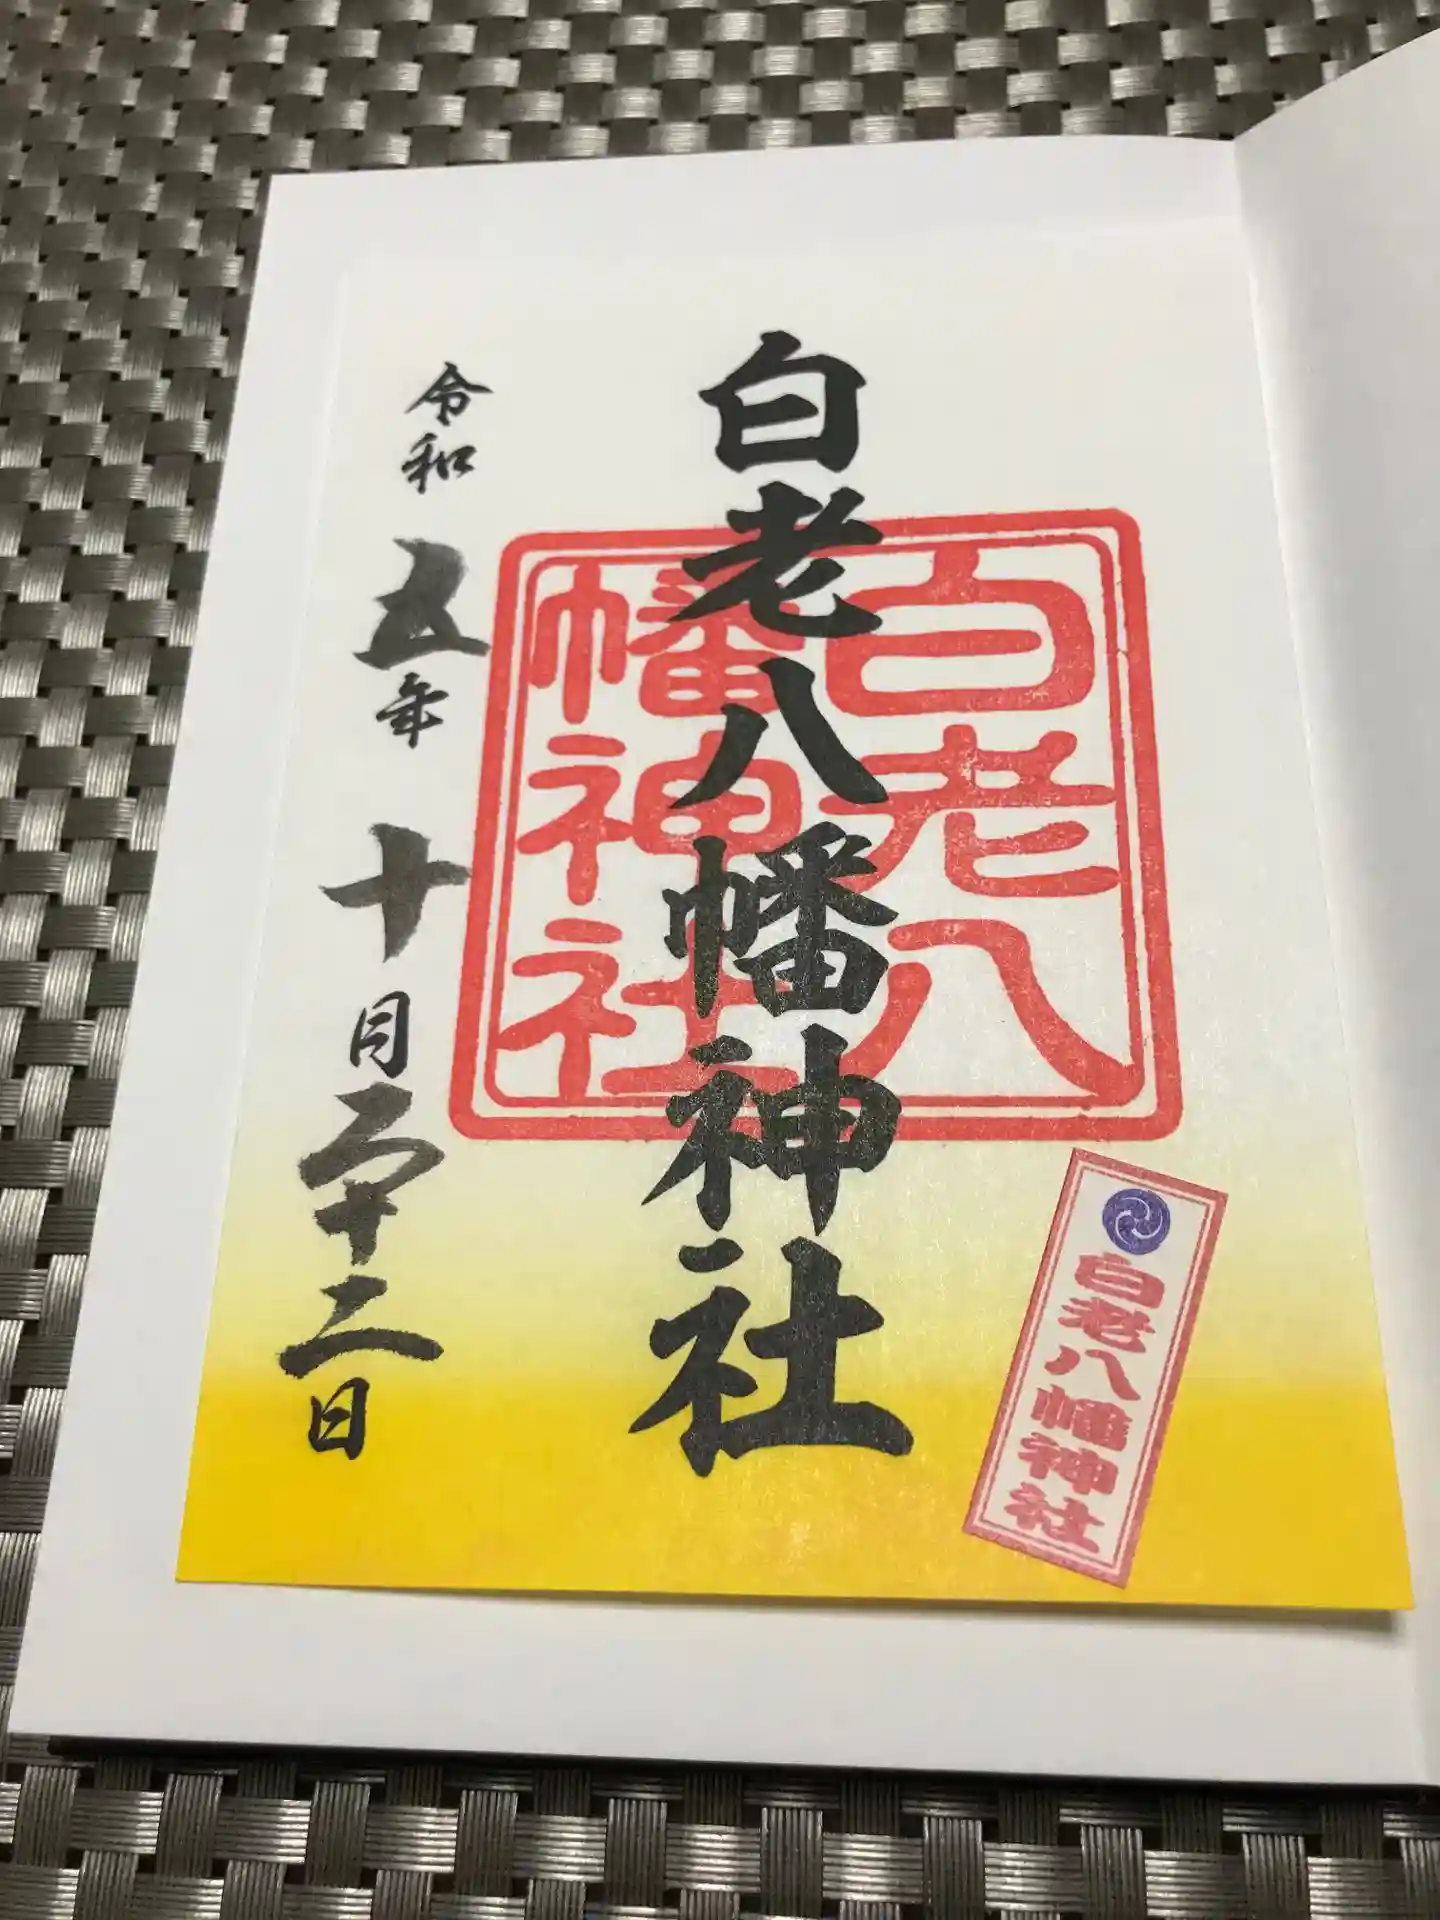 白老八幡神社
白老八
幡神社
令和五年十月二十二日
白老八幡神社